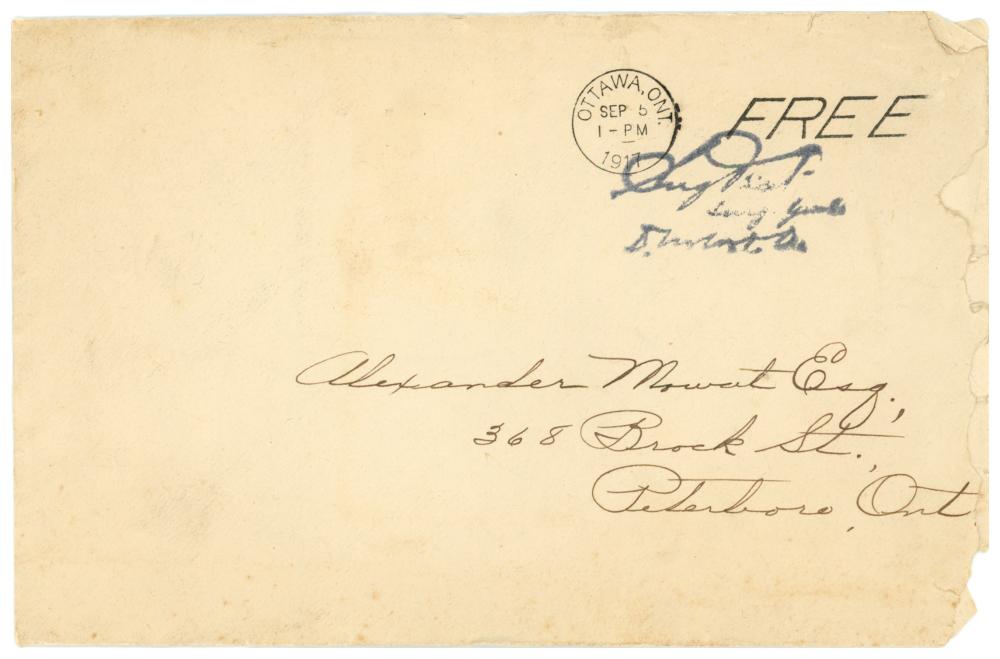 OTTAWA, ONT.
SEP 5
1-PM
1917
FREE
Alexander Mowat Esq.,
368 Brock St.,
Peterboro, Ont.